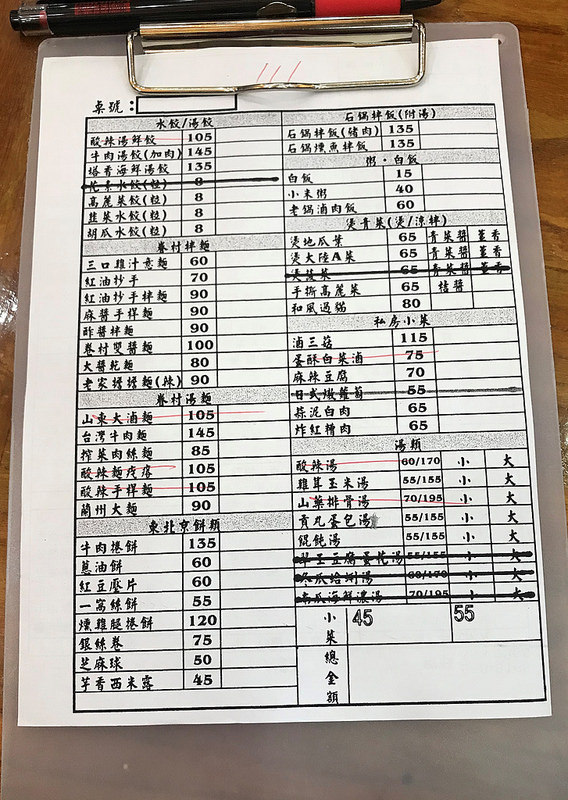 111
桌號:
水餃/湯餃
酸辣湯鮮餃 105
牛肉湯餃(加肉) 145
塔香海鮮湯餃 135
花素水餃(粒) 8
高麗菜餃(粒) 8
韭菜水餃(粒) 8
胡瓜水餃(粒) 8
眷村拌麵
三口雞汁意麵 60
紅油抄手 70
紅油抄手拌麵 90
麻醬手桿麵 90
酢醬拌麵 90
眷村炸醬麵 100
大醬乾麵 80
老家麵(辣) 90
眷村湯麵
山東大滷麵 105
台灣牛肉麵 145
搾菜肉絲麵 85
酸辣麵疙瘩 105
酸辣手桿麵 105
蘭州大麵 90
東北京餅類
牛肉捲餅 135
蔥油餅 60
紅豆壓片 60
一窩絲餅 55
燻雞腿捲餅 120
銀絲卷 75
芝麻球 50
芋香西米露 45
石鍋拌飯(附湯)
石鍋拌飯(豬肉) 135
石鍋燻魚拌飯 135
粥·白飯
白飯 15
小米粥 40
老鍋滷肉飯 60
燙青菜(燙/涼拌)
燙地瓜葉 65 青菜醬 薑香
燙大陸A菜 65 青菜醬 薑香
燙菠菜 65 青菜醬 薑香
手撕高麗菜 65 桔醬
和風過貓 80
私房小菜
滷三菇 115
蛋酥白菜滷 75
麻辣豆腐 70
日式燉蘿蔔 55
蒜泥白肉 65
炸紅糟肉 65
湯類
酸辣湯 60/170 小 大
雞茸玉米湯 55/155 小 大
山藥排骨湯 70/195 小 大
貢丸蛋包湯 55/155 小 大
餛飩湯 55/155 小 大
翠玉豆腐蛋花湯 55/155 小 大
冬瓜蛤蜊湯 60/170 小 大
南瓜海鮮濃湯 70/195 小 大
小菜 45 55
總金額